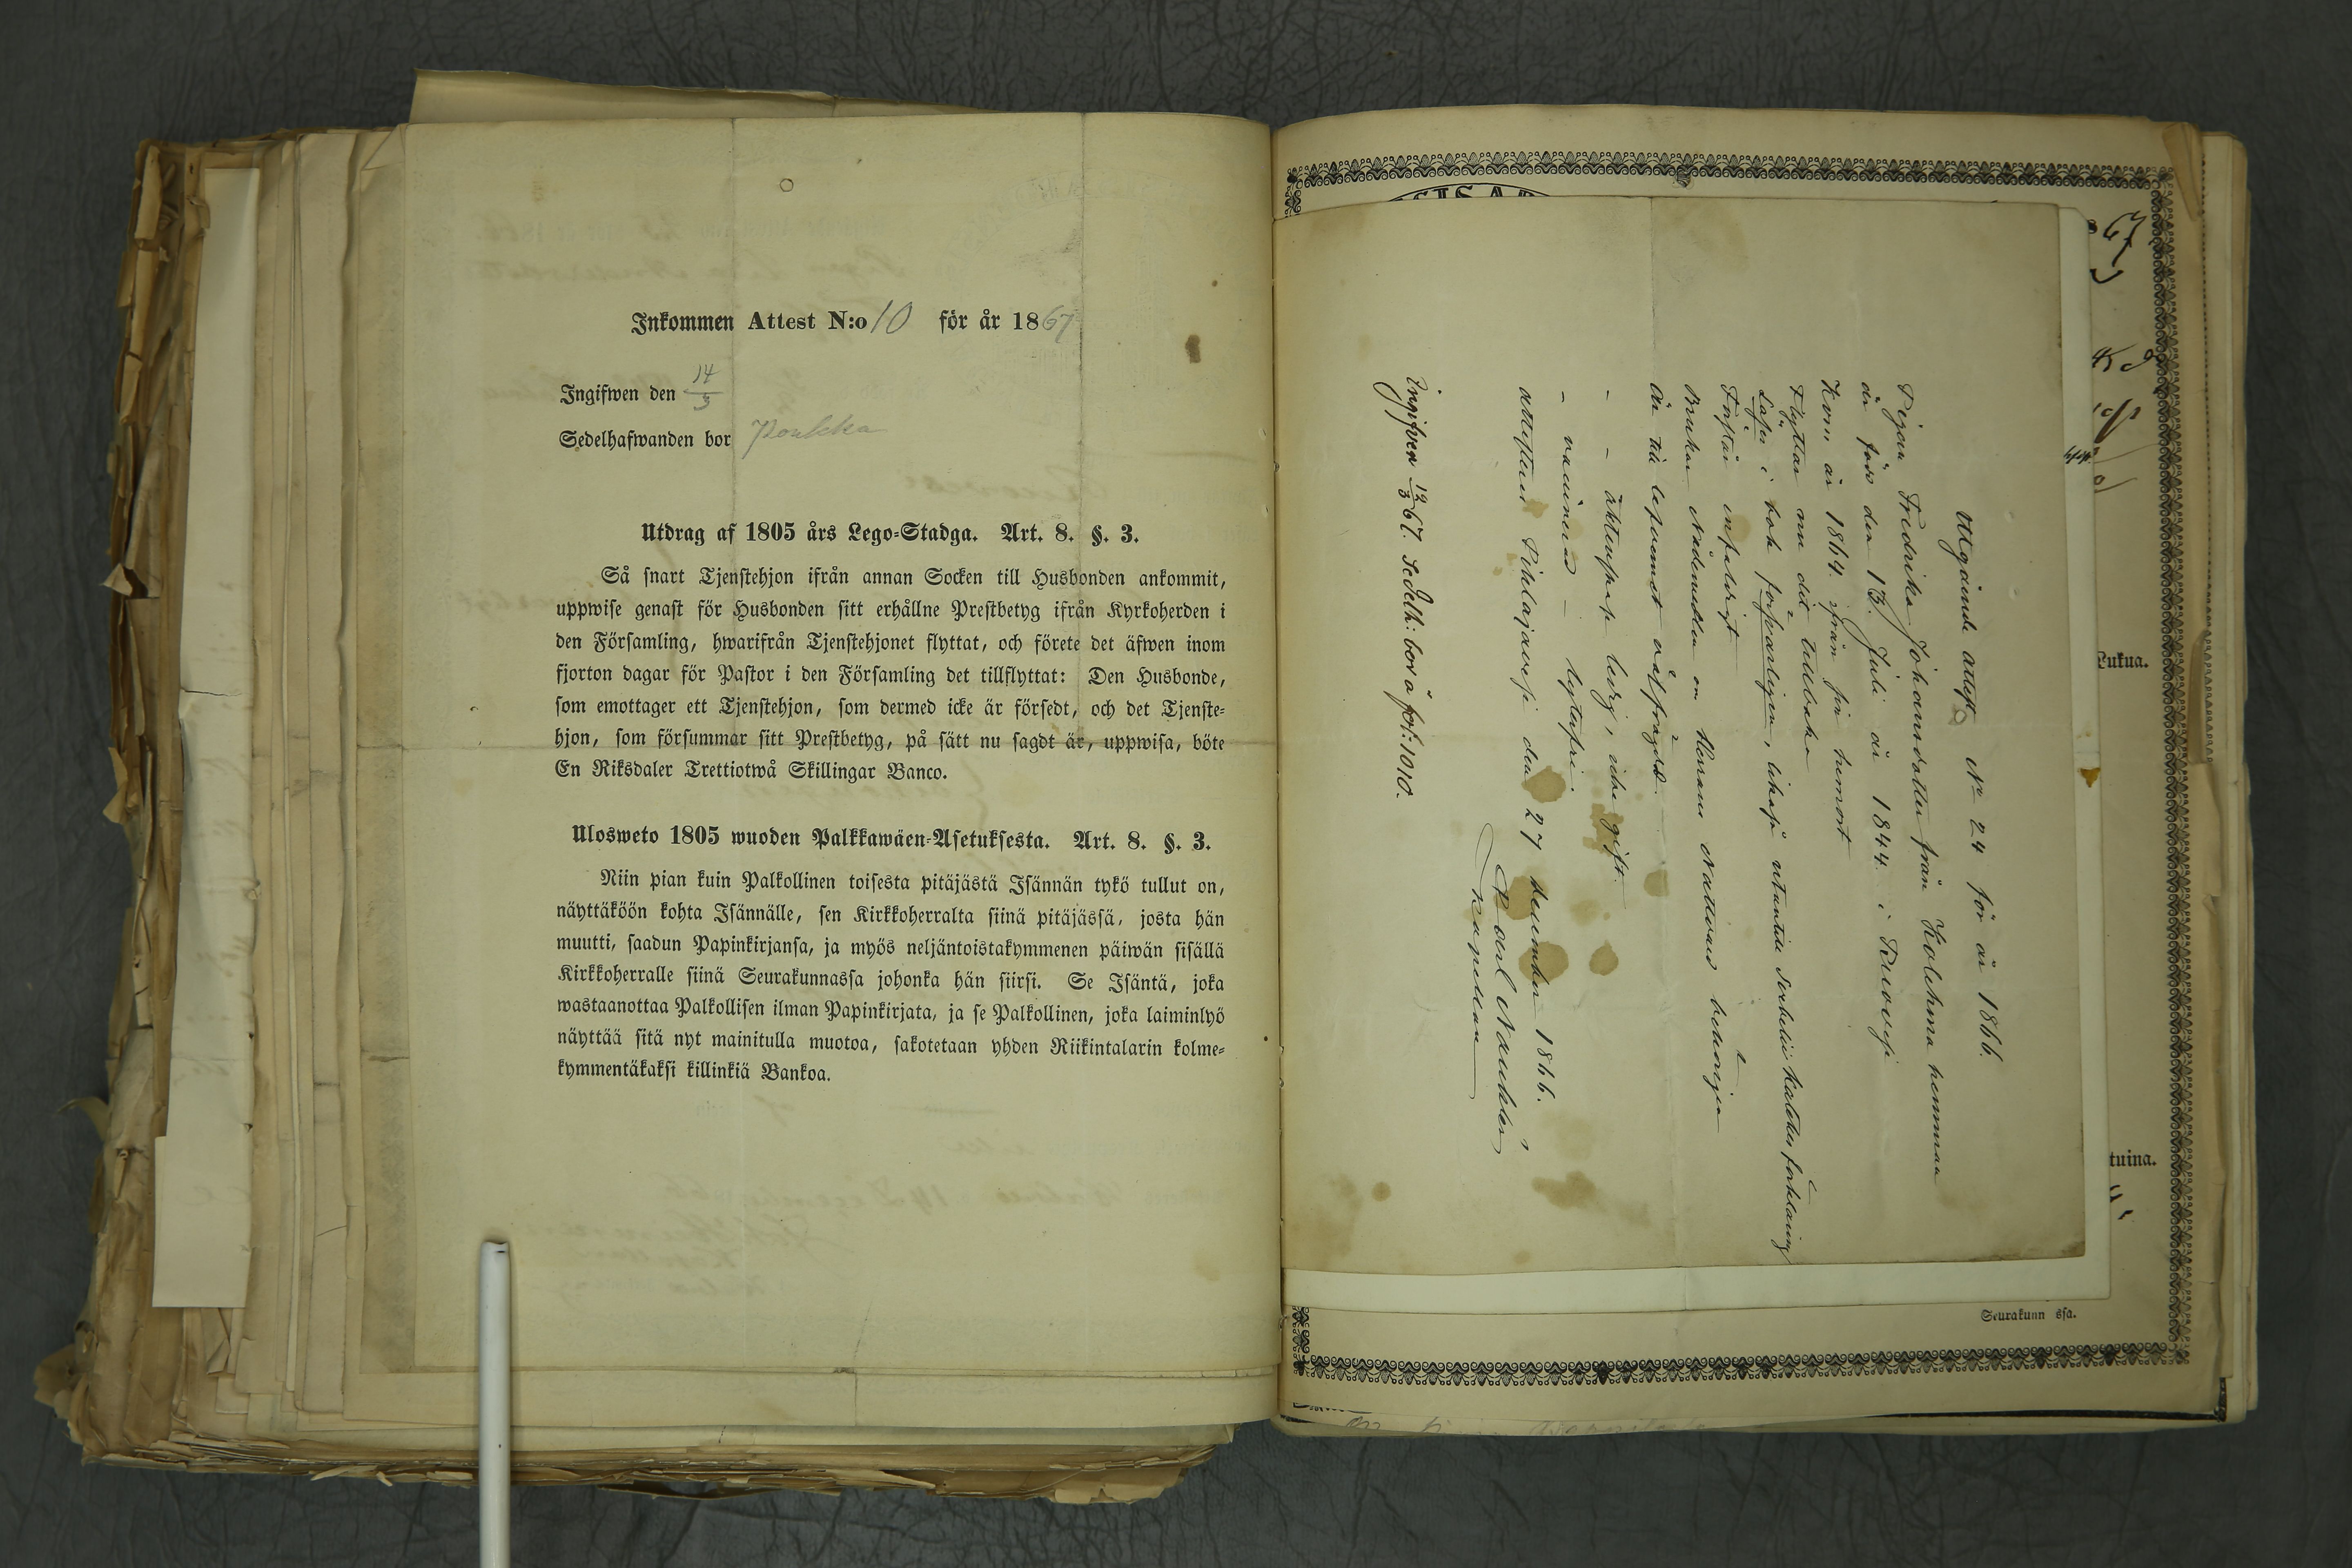 Inkommen Attest N:o 10 för år 1867
Ingifwen den 14/3
Sedelhafwanden bor Poukka
Utdrag af 1805 års Lego-Stadga. Art. 8. §. 3.
Så snart Tjenstehjon ifrån annan Socken till Husbonden ankommit,
uppwise genast för Husbonden sitt erhållne Prestbetyg ifrån Kyrkoherden i
den Församling, hwarifrån Tjenstehjonet flyttat, och förete det äfwen inom
fjorton dagar för Pastor i den Församling det tillflyttat: Den Husbonde,
som emottager ett Tjenstehjon, som dermed icke är försedt, och det Tjenste-
hjon, som försummar sitt Prestbetyg, på sätt nu sagdt är, uppwisa, böte
En Riksdaler Trettiotwå Skillingar Banco.
Ulosweto 1805 wuoden Palkkawäen-Asetuksesta. Art. 8. §. 3.
Niin pian kuin Palkollinen toisesta pitäjästä Isännän tykö tullut on,
näyttäköön kohta Isännälle, sen Kirkkoherralta siinä pitäjässä, josta hän
muutti, saadun Papinkirjansa, ja myös neljäntoistakymmenen päiwän sisällä
Kirkkoherralle siinä Seurakunnassa johonka hän siirsi. Se Isäntä, joka
wastaanottaa Palkollisen ilman Papinkirjata, ja se Palkollinen, joka laiminlyö
näyttää sitä nyt mainitulla muotoa, sakotetaan yhden Riikintalarin kolme-
kymmentäkaksi killinkiä Bankoa.
Utgående attest No 24 för år 1866.
Pigan Fredrika Johansdotter från Kolehma hemman
är född den 13 Juli år 1844 i Ruovesi
Kom år 1864 ifrån sin hemort
Flyttar nu dit tillbaka
Läser i bok försvarligen, likaså utantill Svebelii Kateches förklaring
Förstår enfaldigt
Brukar Nådemedlen en Herrans Nattvard behörigen
Är till lefvernet väl frägdad
- - äktenskap ledig, icke gift.
- vaccinerad - lytesfri
attesterar Pihlajavesi den 27 december 1866.
Kapellan
Ingifven 12/3 67. Sedelh: bor å fol: 1010.
67
Lukua.
tuina.
Seurakunn ssa.